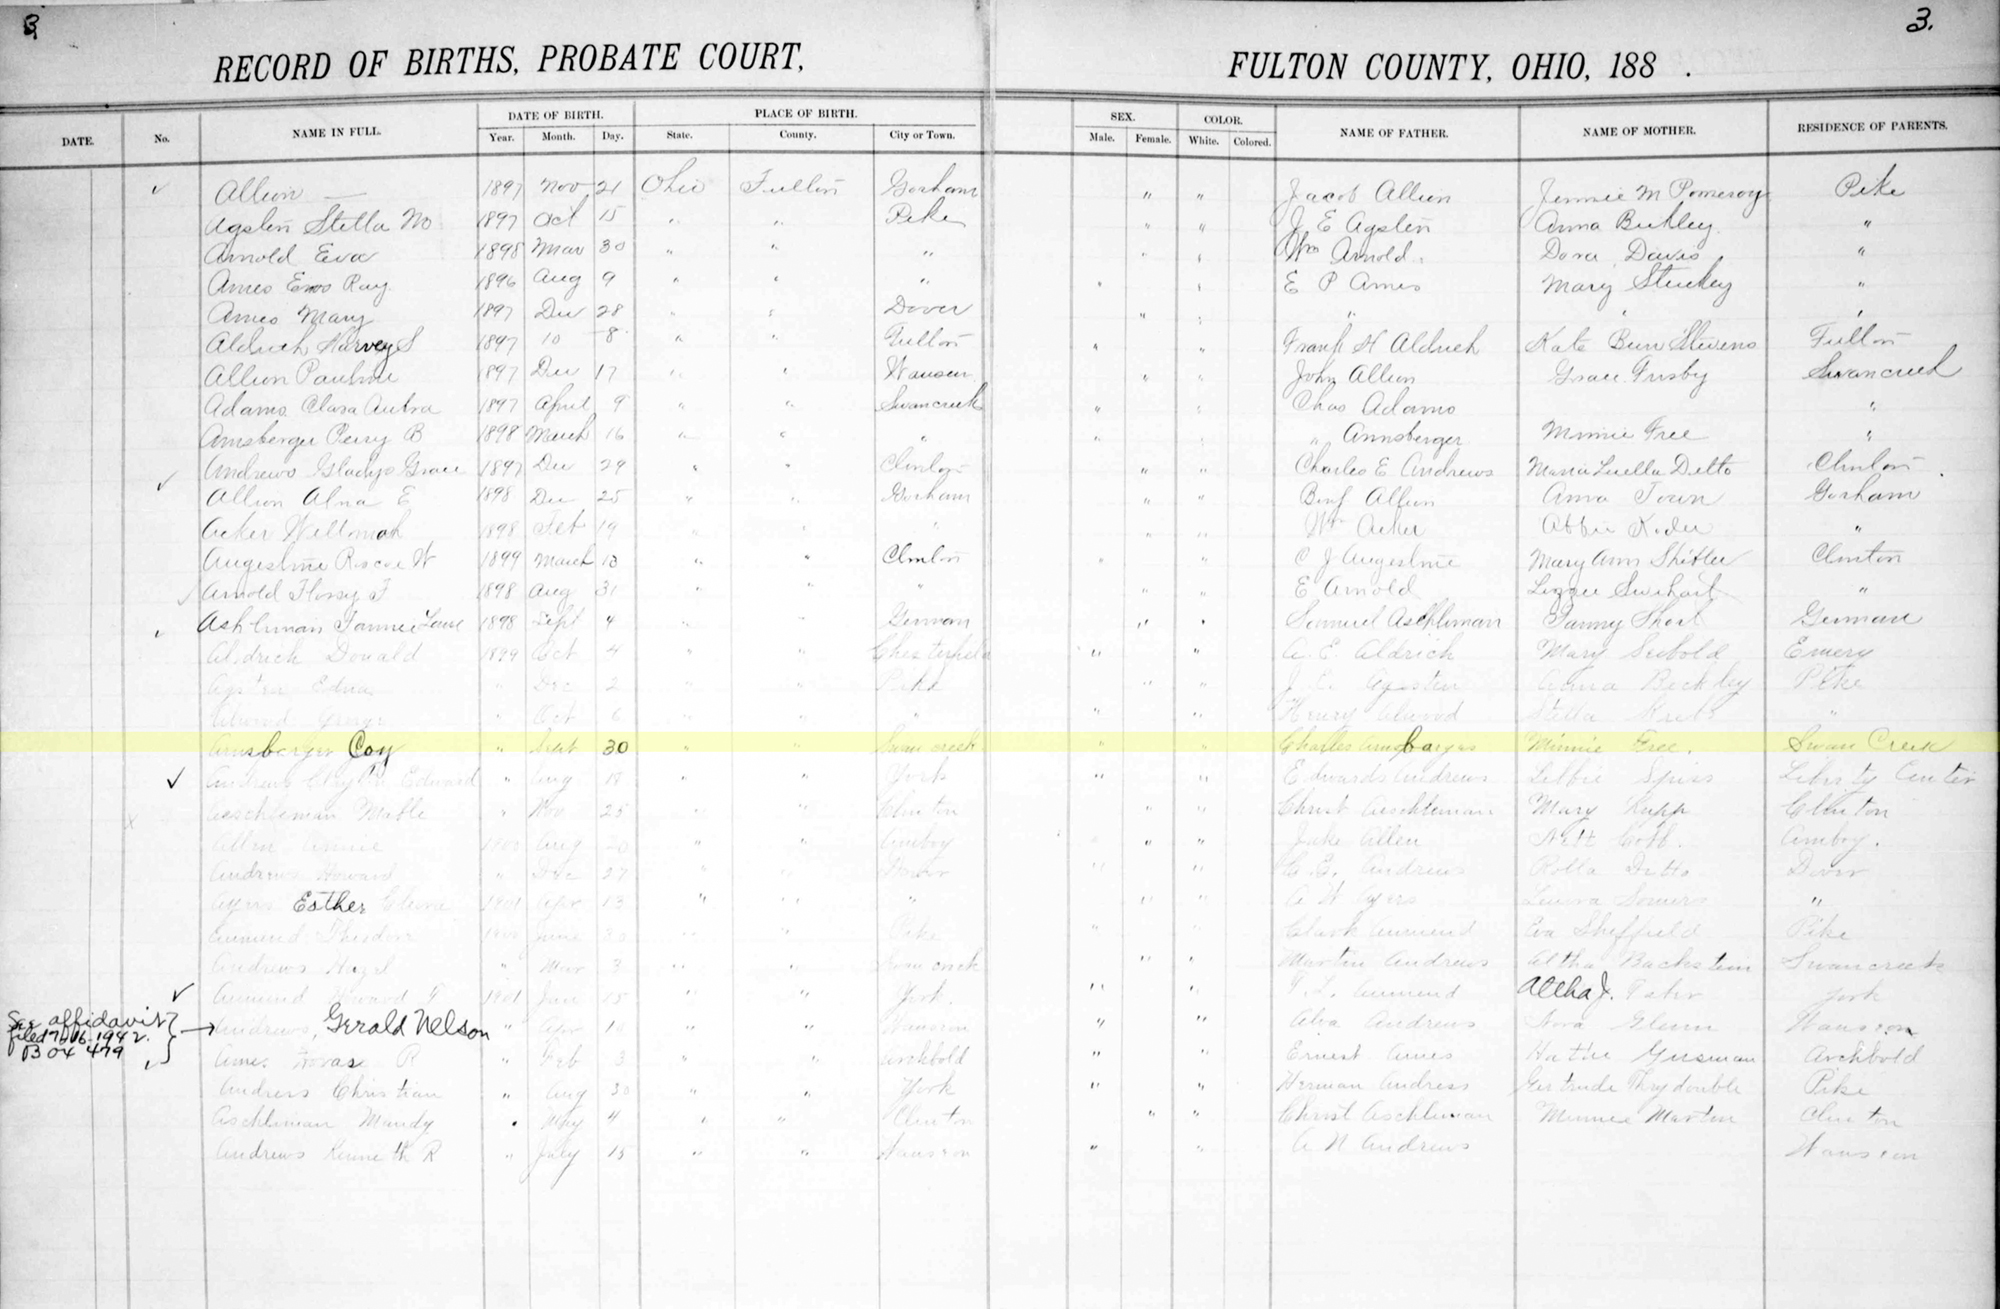 3 3.
RECORD OF BIRTHS, PROBATE COURT, FULTON COUNTY, OHIO, 188 .
DATE. No. NAME IN FULL. DATE OF BIRTH. PLACE OF BIRTH. SEX. COLOR. NAME OF FATHER. NAME OF MOTHER. RESIDENCE OF PARENTS.
Year. Month. Day. State. County. City or Town. Male. Female. White. Colored.
✓ Allion — 1897 Nov 21 Ohio Fulton Gorham " " Jacob Allion Jennie M Pomeroy Pike
Agsten Stella 1897 Oct 15 " " Pike " " J E Agsten Anna "
Arnold Eva 1898 Mar 30 " " " " " Wm Arnold Dora Davis "
Ames Ray 1896 Aug 9 " " " " " E P Ames Mary Stuckey "
Ames Mary 1897 Dec 28 " " Dover " " " " "
Aldrich Harvey S 1897 10 8 " " Fulton " " Frank H Aldrich Kate Stevens Fulton
Allion Pauline 1897 Dec 17 " " Wauseon " " John Allion Grace Frisby Swancreek
Adams Clara 1897 April 9 " " Swancreek " " Chas Adams "
Arnsberger Perry B 1898 March 16 " " " " " " Arnsberger Minnie Free "
Andrews Gladys Grace 1897 Dec 29 " " Clinton " " Charles E Andrews Maria Luella Ditto Clinton
✓ Allion Alna E 1898 Dec 25 " " Gorham " " Benj Allion Anna Town Gorham
Acker 1898 Feb 19 " " " " " Wm Acker Abbie "
Augestine Roscoe W 1899 March 13 " " Clinton " " C J Augestine Mary Ann Shibler Clinton
✓ Arnold Flossy F 1898 Aug 31 " " " " " E Arnold Lizzie Swihart "
✓ Ashliman Fannie 1898 Sept 4 " " German " " Samuel Aschliman Fanny Short German
Aldrich Donald 1899 Oct 4 " " Chesterfield " " A. E. Aldrich Mary Seibold Emery
Agsten Edna " Dec 2 " " Pike " " J E Agsten Anna Pike
Atwood George " Oct 6 " " " " " Henry Atwood Stella Krebs "
Arnsberger Coy " Sept 30 " " Swan creek " " Charles Minnie Free. Swan Creek
✓ Andrews Edward " Aug 18 " " York " " Edwards Andrews Libbie Spiess Liberty Center
x Aeschleman Mable " Nov 25 " " Clinton " " Christ Aeschleman Mary Rupp Clinton
Allen Annie 1900 Aug 20 " " Amboy " " Jake Allen Nett Cobb. Amboy.
Andrews Howard " Dec 27 " " Dover " " C. E. Andrews Rolla Ditto Dover
Ayers Esther 1901 Apr 13 " " " " " A W Ayers Somers "
Aumend Theodore 1900 June 30 " " Pike " " Clark Aumend Eva Sheffield Pike
Andrews Hazel " Mar 3 " " Swan creek " " Martin Andrews Altha Swancreek
✓ Aumend Howard 1901 Jan 15 " " York. " " Aumend Altha J. York
See affidavit filed 1942. 479 → Andrews, Gerald Nelson " Apr 10 " " Wauseon " " Alva Andrews Nora Glenn Wauseon
✓ Ames R " Feb 3 " " Archbold " " Ernest Ames Hattie Gusman Archbold
Andress Christian " Aug 30 " " York " " Herman Andress Gertrude Pike
Aschliman Mandy " May 4 " " Clinton " " Christ Aschliman Minnie Martin Clinton
Andrews Kenneth R " July 15 " " Wauseon " " A N Andrews Wauseon